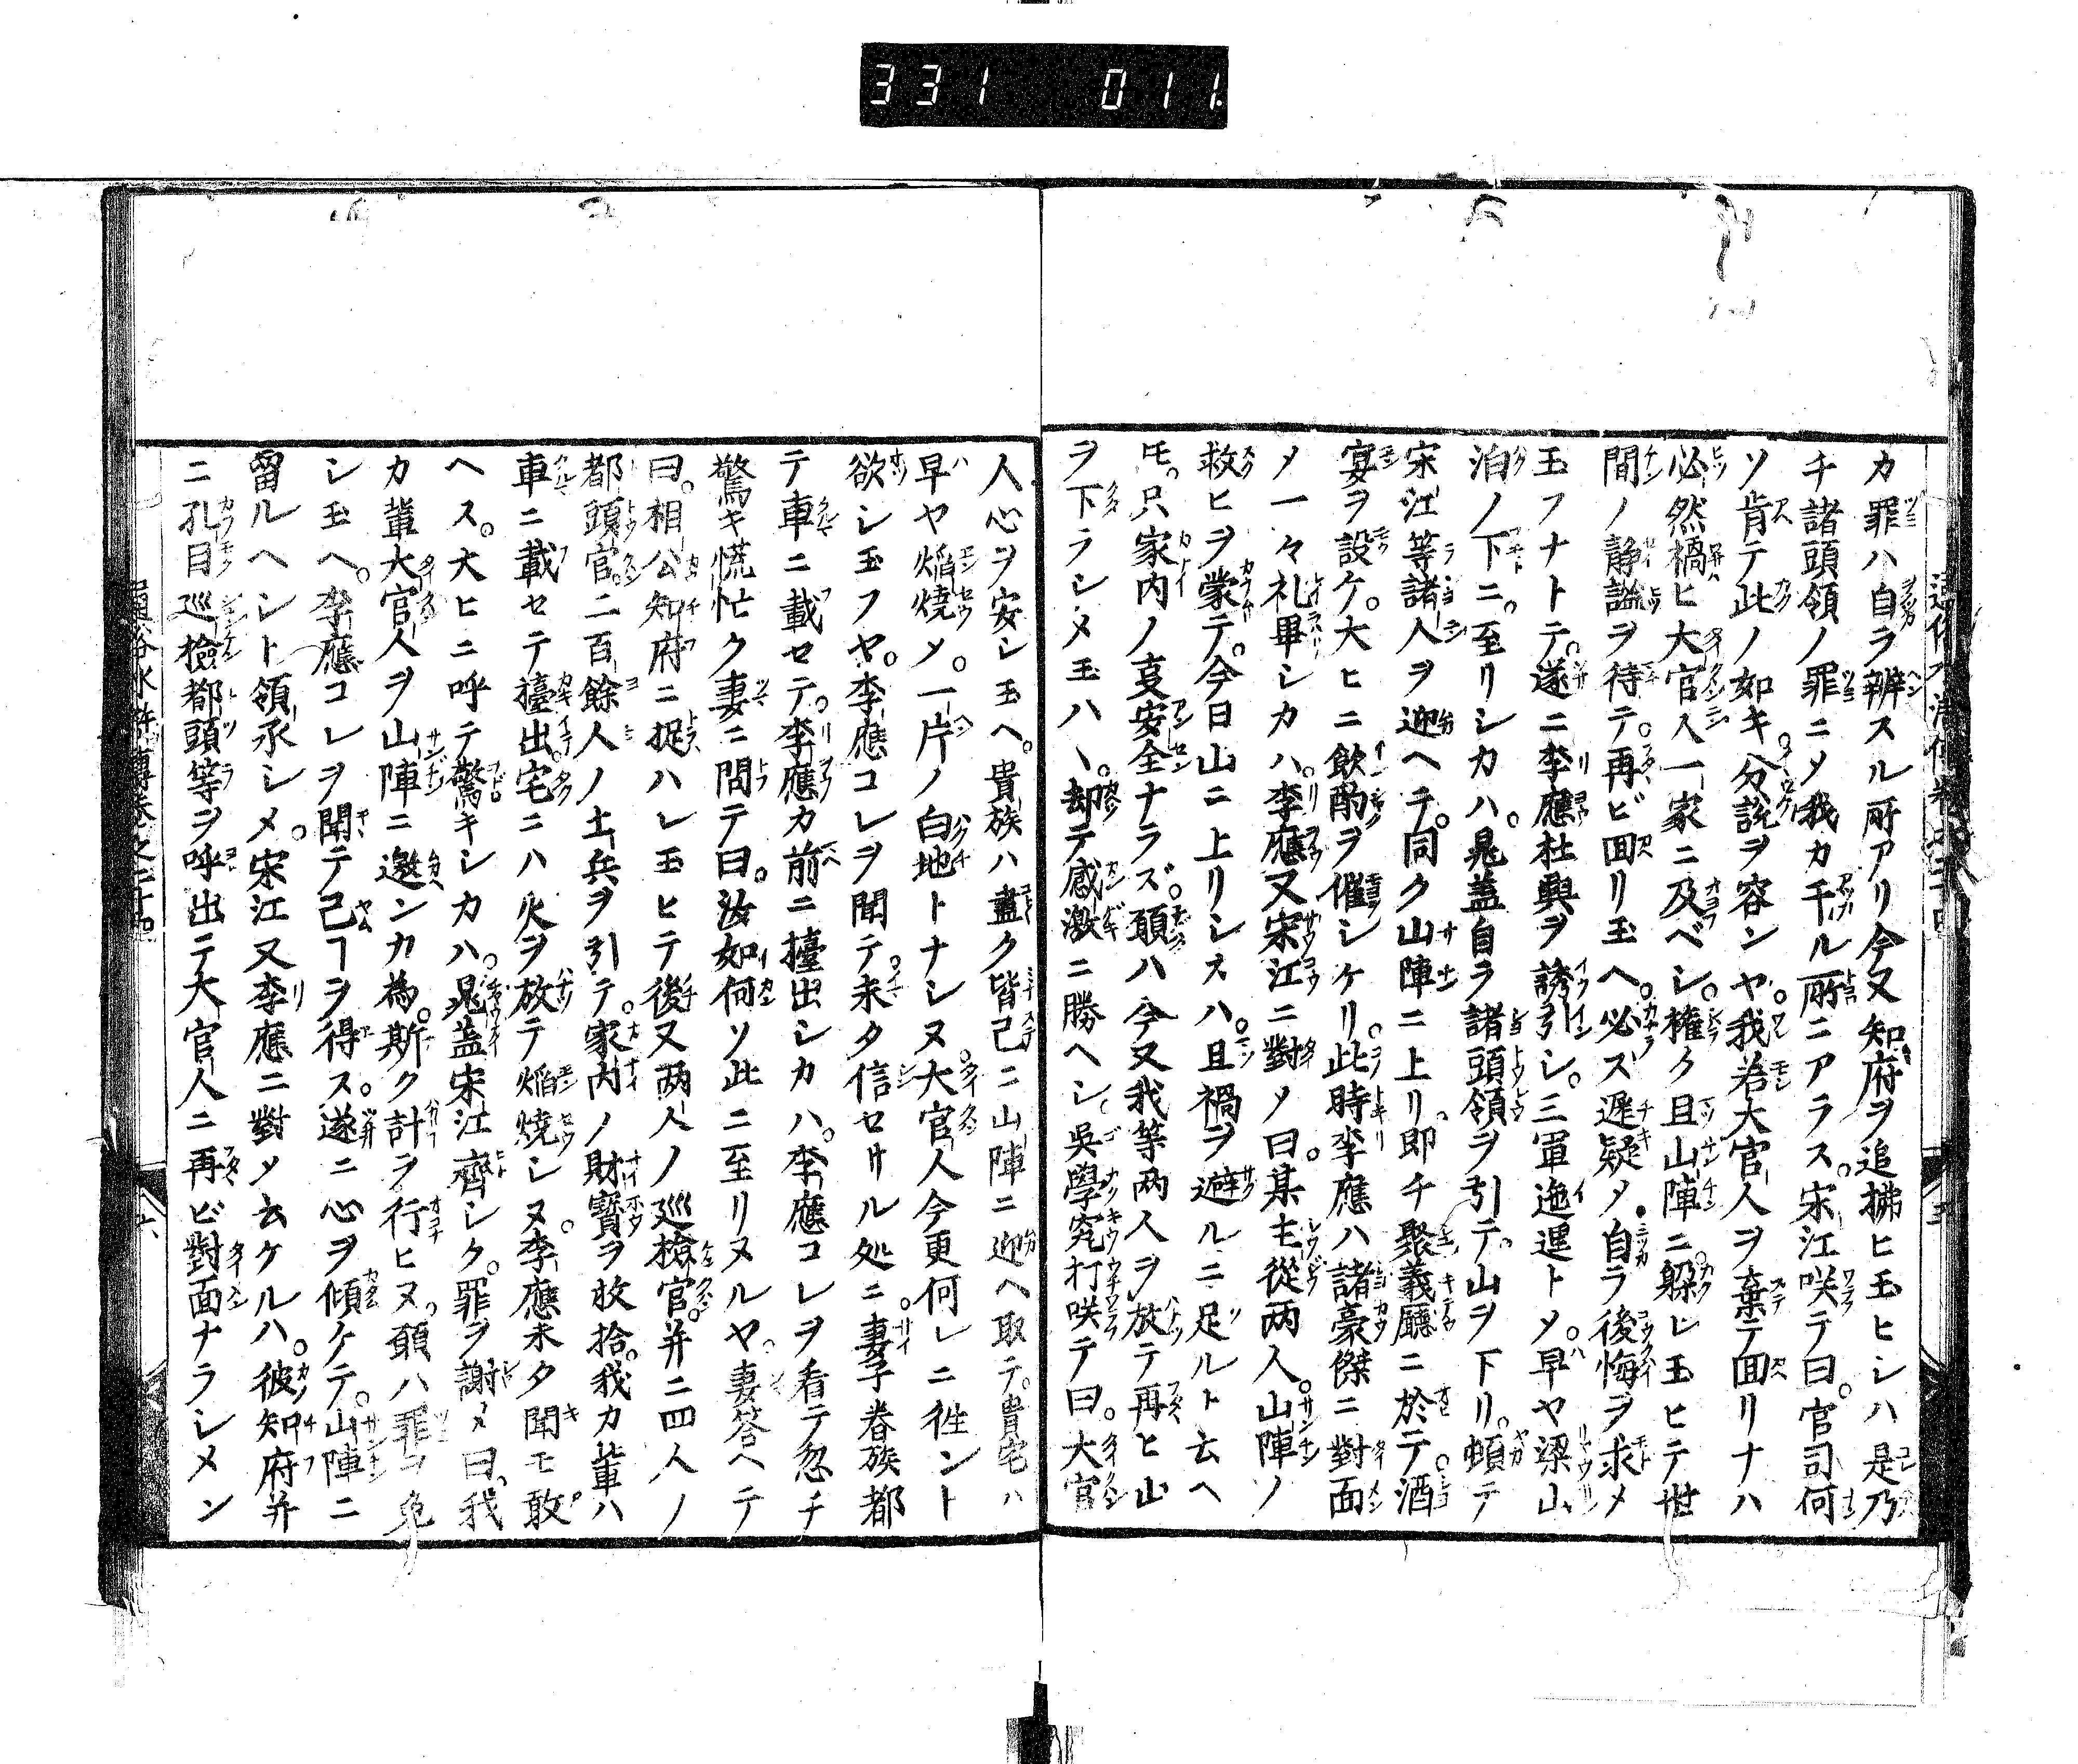 331 011.
カ罪ハ自ラ辨スル所アリ今又知府ヲ追拂ヒ玉ヒシハ是乃
チ諸頭領ノ罪ニメ我カ干ル所ニアラス。宋江咲テ曰。官司何
ソ肯テ此ノ如キ。分説ヲ容ンヤ。我若大官人ヲ棄テ回リナハ
必然禍ヒ大官人一家ニ及ベシ。権ク且山陣ニ躱レ玉ヒテ世
間ノ静謐ヲ待テ。再ビ回リ玉ヘ。必ズ遲疑メ自ラ後悔ヲ求メ
玉フナトテ。遂ニ李應杜興ヲ誘引シ。三軍迤邐トメ。早ヤ梁山
泊ノ下ニ。至リシカハ。晁盖自ラ諸頭領ヲ引テ。山ヲ下リ。頓テ
宋江等諸人ヲ迎ヘテ。同ク山陣ニ上リ即チ聚義廳ニ於テ。酒
宴ヲ設ケ。大ヒニ飲酌ヲ催シケリ。此時李應ハ諸豪傑ニ對面
メ一々礼畢シカハ。李應又宋江ニ對メ曰。某主從両人。山陣ソ
救ヒヲ蒙テ。今日山ニ上リシスハ。且禍ヲ避ルニ足ルト云ヘ
𪜈。只家内ノ叓安全ナラズ。願ハ今又我等両人ヲ放テ再ヒ山
ヲ下ラシメ玉ハヽ。却テ感激ニ勝ヘシ。吳學究打咲テ曰。大官
人心ヲ安シ玉ヘ。貴族ハ盡ク皆已ニ山陣ニ迎ヘ取テ。貴宅ハ
早ヤ焔燒メ。一片ノ白地トナシヌ。大官人今更何レニ徃ント
欲シ玉フヤ。李應コレヲ聞テ。未タ信セサル処ニ。妻子眷族都
テ車ニ載セテ。李應カ前ニ擡出シカハ。李應コレヲ看テ忽チ
驚キ慌忙ク妻ニ問テ曰。汝如何ソ此ニ至リヌルヤ。妻答ヘテ
曰。相公知府ニ捉ハレ玉ヒテ後又両人ノ巡檢官。并ニ四人ノ
都頭官。二百餘人ノ土兵ヲ引テ。家内ノ財寳ヲ收拾。我カ輩ハ
車ニ載セテ擡出。宅ニハ火ヲ放テ焔燒シヌ。李應未タ聞モ敢
ヘス。大ヒニ呼テ驚キシカハ。晁盖宋江齊シク。罪ヲ謝メ曰。我
カ輩大官人ヲ山陣ニ邀ンカ為。斯ク計ヲ行ヒヌ。願ハ罪ヲ免
シ玉ヘ。李應コレヲ聞テ己ヿヲ得ス。遂ニ心ヲ傾ケテ。山陣ニ
留ルヘント領承シメ。宋江又李應ニ對メ云ケルハ。彼知府并
ニ孔目巡檢都頭等ヲ呼出テ大官人ニ再ビ對面ナラシメン